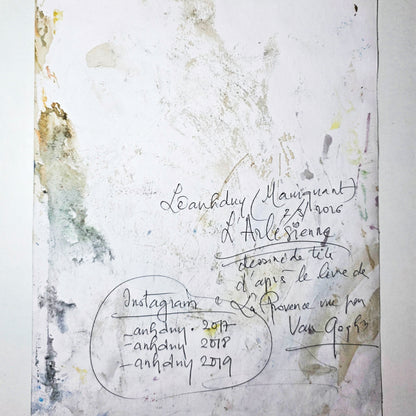 Leanhduy (Maniquant)
2/5/2026
L'Arlésienne
dessiné de tête
d'après le livre de
La Provence vue par
Van Gogh
Instagram
-anhduy.2017
-anhduy 2018
-anhduy 2019